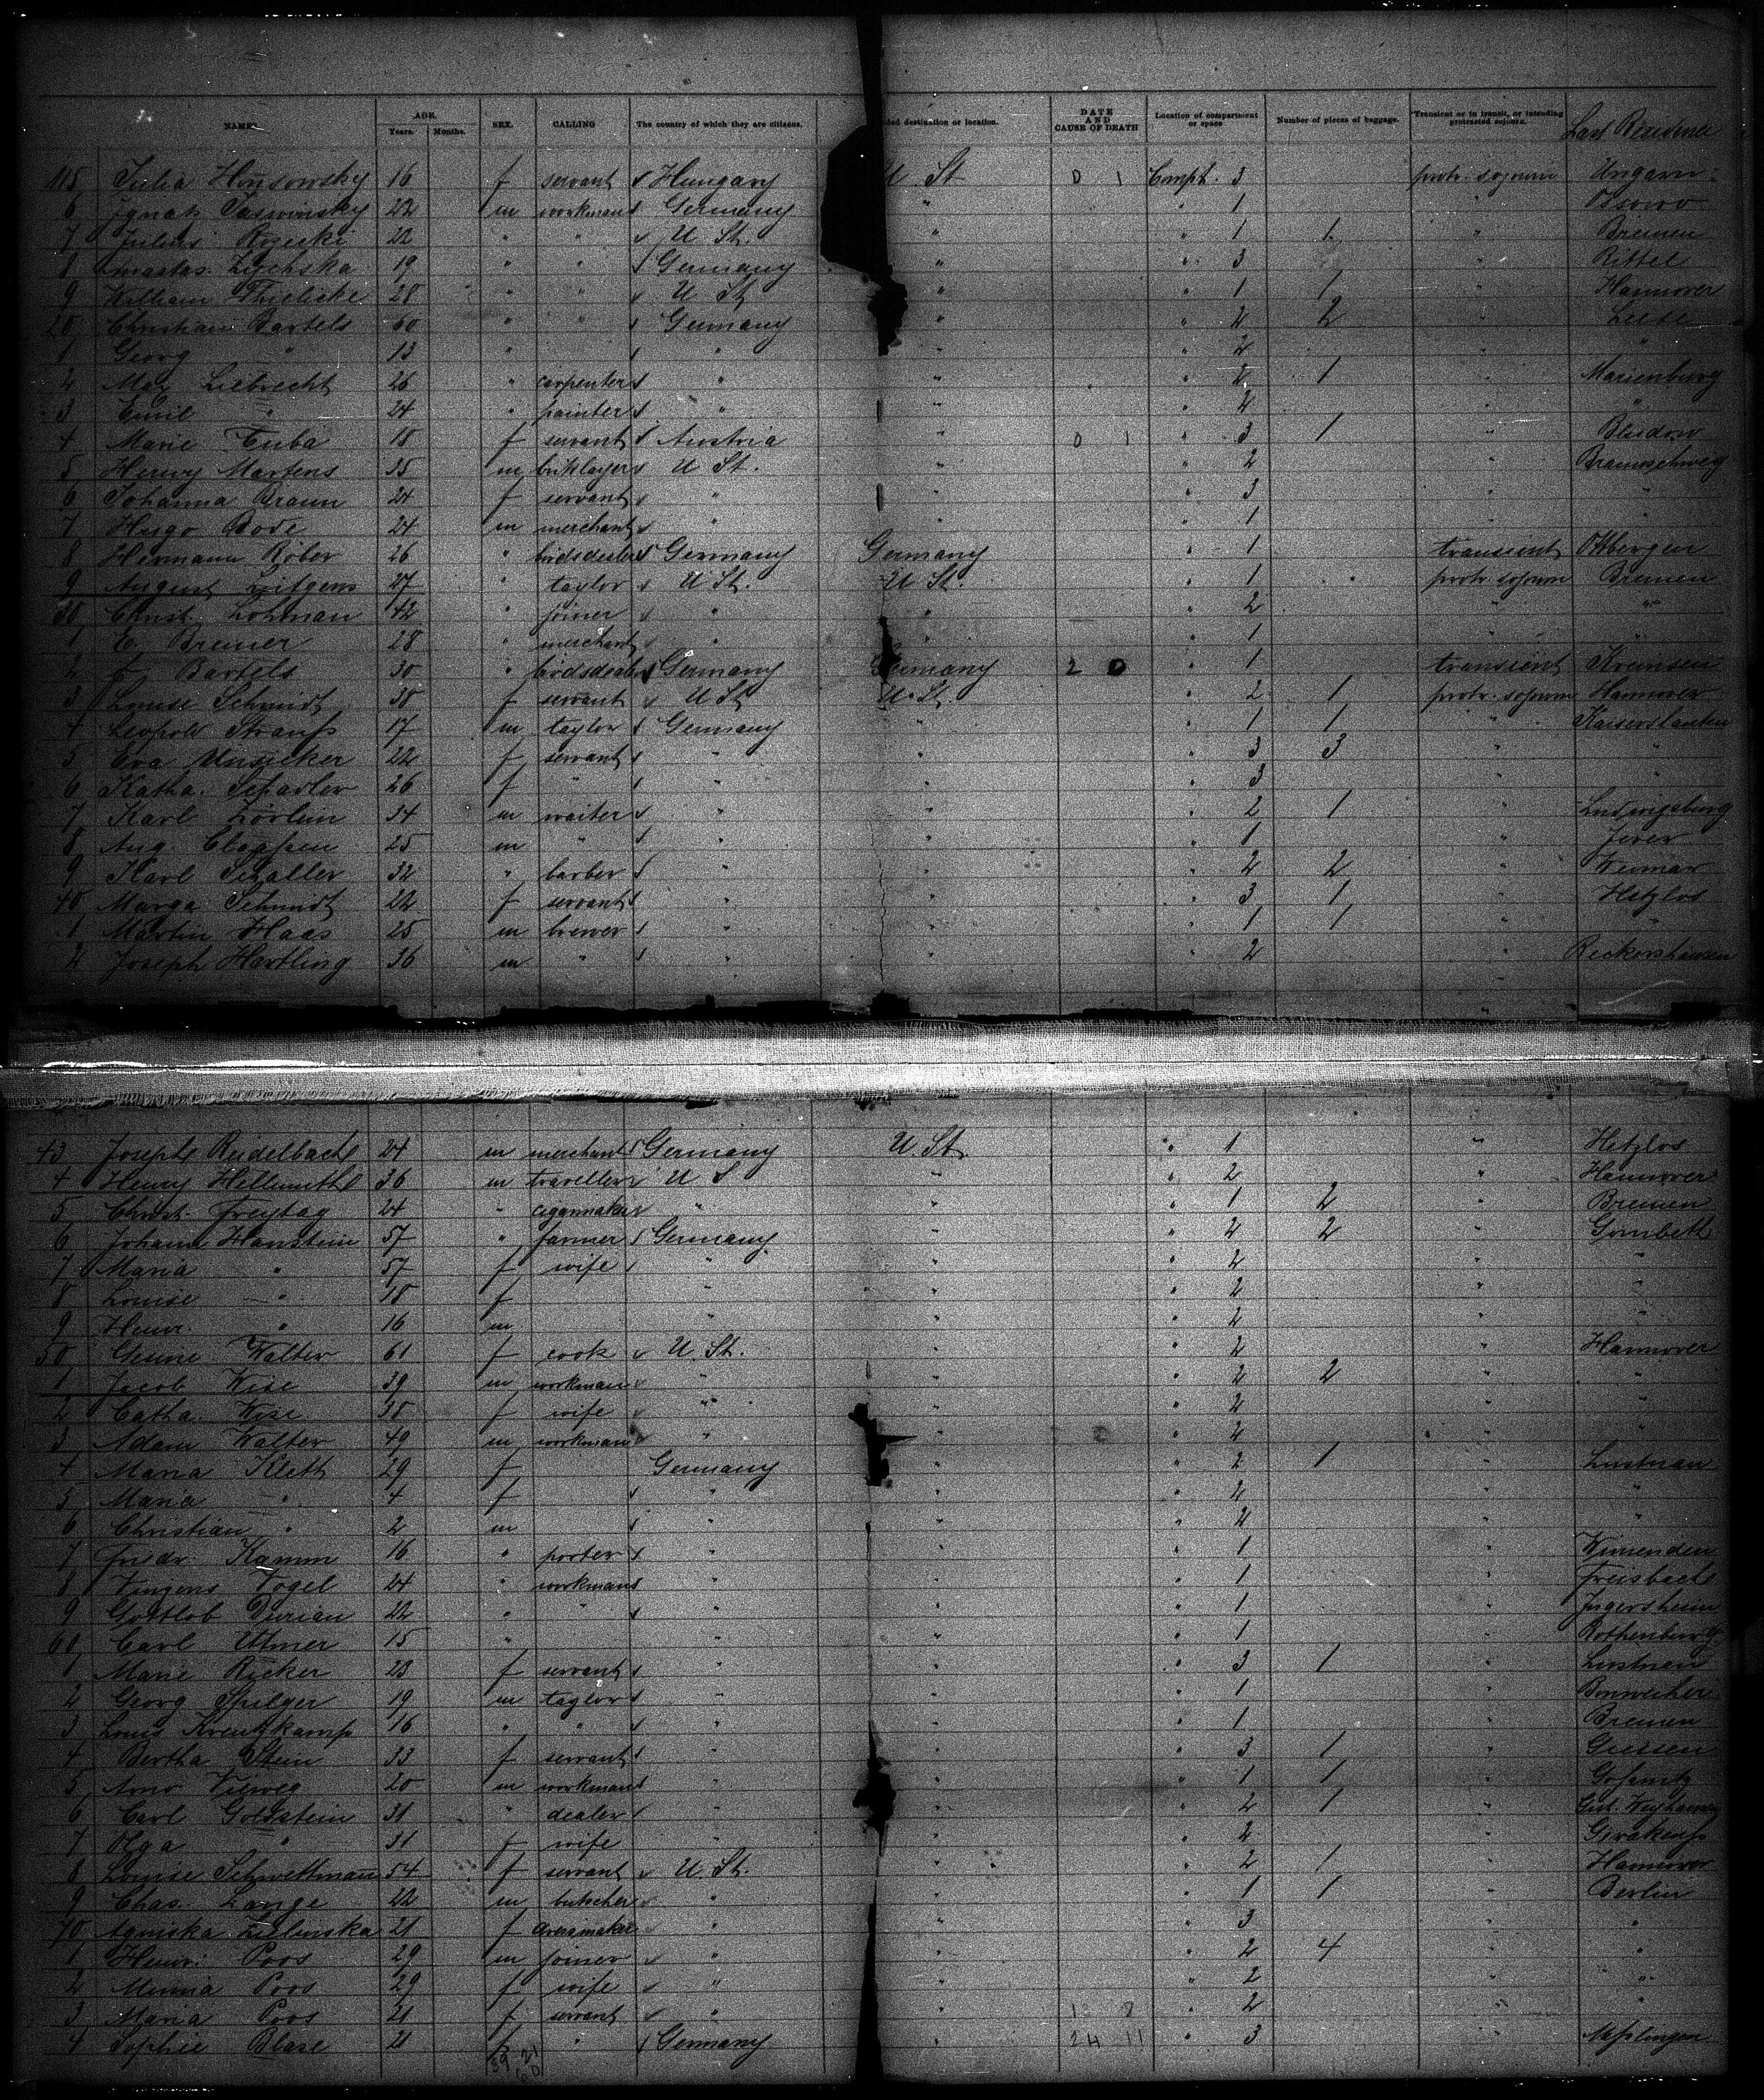 NAME. AGE. Years. Months. SEX. CALLING The country of which they are citizens. ded destination or location. DATE AND CAUSE OF DEATH Location of compartment or space Number of pieces of baggage. Transient or in transit, or intending protracted sojourn. Last Residence
115 Julia 16 f servant Hungary U. St. 0 1 Compt. 3 protr. sojourn Ungarn
6 Ignatz 22 m workman Germany " " 1 "
7 Julius 22 " " U. St. " " 1 1 " Bremen
8 19 " " Germany " " 3 " Rittel
9 William Thielicke 28 " " U. St. " " 1 1 " Hannover
20 Christian Bartels 60 " " Germany " " 2 2 " Leese
1 Georg " 13 " " " " 2 " "
2 Max Liebrecht 26 " carpenter " " " 2 1 " Marienburg
3 Emil " 24 " painter " " " 2 " "
4 Marie Tuba 18 f servant Austria " 0 1 " 3 1 " Bludow
5 Henry Martens 35 m briklayer U. St. " " 2 " Braunschweig
6 Johanna Braun 24 f servant " " " 3 " "
7 Hugo Bode 24 m merchant " " " 1 " "
8 Hermann Röber 26 " birdsdealer Germany Germany " 1 transient Ottbergen
9 August 27 " taylor U. St. U. St. " 1 protr. sojourn Bremen
30 Christ. Lohman 42 " joiner " " " 2 " "
1 E. Bremer 28 " merchant " " " 1 " "
2 F. Bartels 30 " birdsdealer Germany Germany 2 0 " 1 transient
3 Louise Schmidt 38 f servant U. St. U. St. " 2 1 protr. sojourn Hannover
4 Leopold Strauss 17 m taylor Germany " " 1 1 " Kaiserslautern
5 Eva Musicker 22 f servant " " " 3 3 " "
6 Katha. Schadler 26 f " " " " 3 " "
7 Karl Zörlein 34 m waiter " " " 2 1 " Ludwigsburg
8 Aug. Clasen 25 m " " " " 1 " Jever
9 Karl Schaller 32 " barber " " " 2 2 " Weimar
40 Marga Schmidt 22 f servant " " " 3 1 " Hetzlos
1 Martin Haas 25 m brewer " " " 1 1 " "
2 Joseph Hartling 36 m " " " " 2 " Reckershausen
43 Joseph Reidelbach 24 m merchant Germany U. St. " 1 " Hetzlos
4 Henry Hellmuth 36 m traveller U. S " " 2 " Hannover
5 Christ. Freytag 24 " cigarmaker " " " 1 2 " Bremen
6 Johann Hanstein 57 " farmer Germany " " 2 2 " Gombeth
7 Maria " 57 f wife " " " 2 " "
8 Louise " 18 f " " " 2 " "
9 Heinr. " 16 m " " " 2 " "
50 Walter 61 f cook U. St. " " 2 " Hannover
1 Jacob Wise 39 m workman " " " 2 2 " "
2 Catha. Wise 38 f wife " " " 2 " "
3 Adam Walter 49 m workman " " " 2 " "
4 Maria Klett 29 f Germany " " 2 1 " Lustnau
5 Maria " 4 f " " " 2 " "
6 Christian " 2 m " " " 2 " "
7 Friedr. Kamm 16 " porter " " " 1 " Winenden
8 Vogel 24 " workman " " " 1 " Freisbach
9 Gottlob Durian 22 " " " " " 1 " Ingersheim
60 Carl Ulmer 15 " " " " 1 " Rothenburg
1 Marie Ricker 23 f servant " " " 3 1 " Lustnau
2 Georg Spilger 19 m taylor " " " 1 "
3 Louis Kreutzkamp 16 " " " " " 1 " Bremen
4 Bertha Stein 33 f servant " " " 3 1 " Giessen
5 Arno Vieweg 20 m workman " " " 1 1 " Gössnitz
6 Carl Goldstein 31 " dealer " " " 2 1 "
7 Olga " 31 f wife " " " 2 "
8 Louise Schwettmann 54 f servant U. St. " " 2 1 " Hannover
9 Chas. Lange 22 m butscher " " " 1 1 " Berlin
70 Agniska Zielinska 21 f dressmaker " " " 3 " "
1 Heinr. Poos 29 m joiner " " " 2 4 " "
2 Minna Poos 29 f wife " " " 2 " "
3 Maria Poos 21 f servant " " 1 8 " 2 " "
4 Sophie Blase 21 f " Germany " 24 11 " 3
39 21